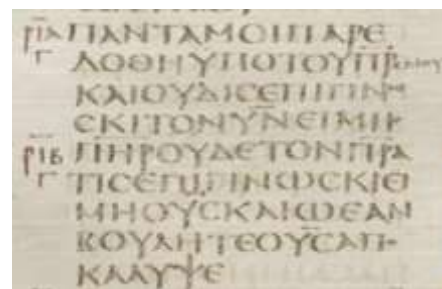 ΡΙΑ ΠΑΝΤΑΜΟΙΠΑΡΕ
Γ ΔΟΘΗΥΠΟΤΟΥΠΡϹΜΟΥ
ΚΑΙΟΥΔΙϹΕΠΙΓΙΝΩ
ϹΚΙΤΟΝΥΝΕΙΜΗ
ΡΙΒ ΠΗΡΟΥΔΕΤΟΝΠΡΑ
Γ ΤΙϹΕΠΙΓΙΝΩϹΚΙΕΙ
ΜΗΟΥϹΚΑΙΩΕΑΝ
ΒΟΥΛΗΤΕΟΥϹΑΠΟ
ΚΑΛΥΨΕ